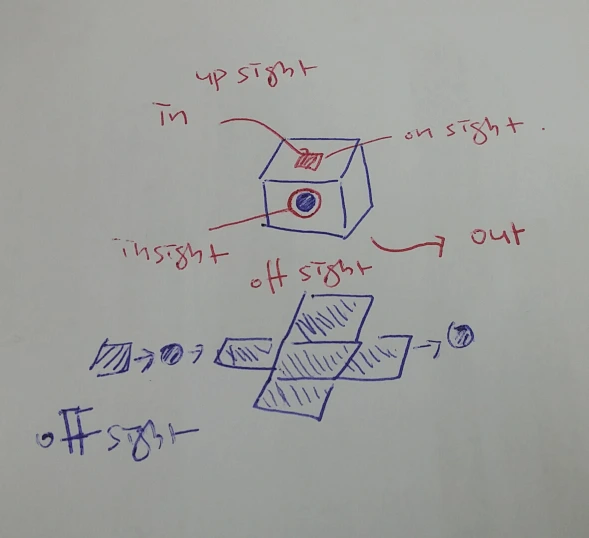 up sight
in
on sight.
insight
out
off sight
off sight